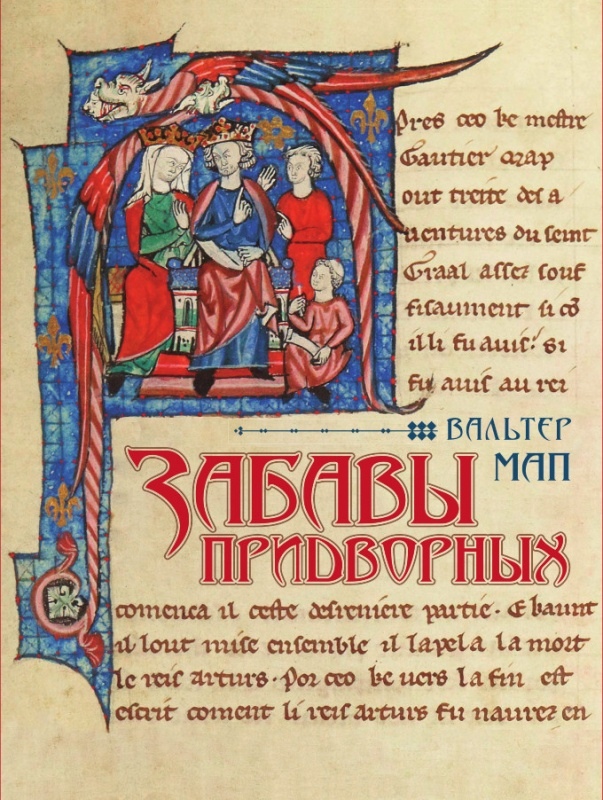 pres ceo ke mestre
Gautier map
out treite des a
uentures du seint
Graal assez souf
fisaument si co
illi fu auis: si
fu auis au rei
ВАЛЬТЕР
МАП
ЗАБАВЫ
ПРИДВОРНЫХ
comenca il ceste desreniere partie. E kaunt
il lout mise ensemble il lapela la mort
le reis arturs. Por ceo ke uers la fin est
escrit coment li reis arturs fu naurez en